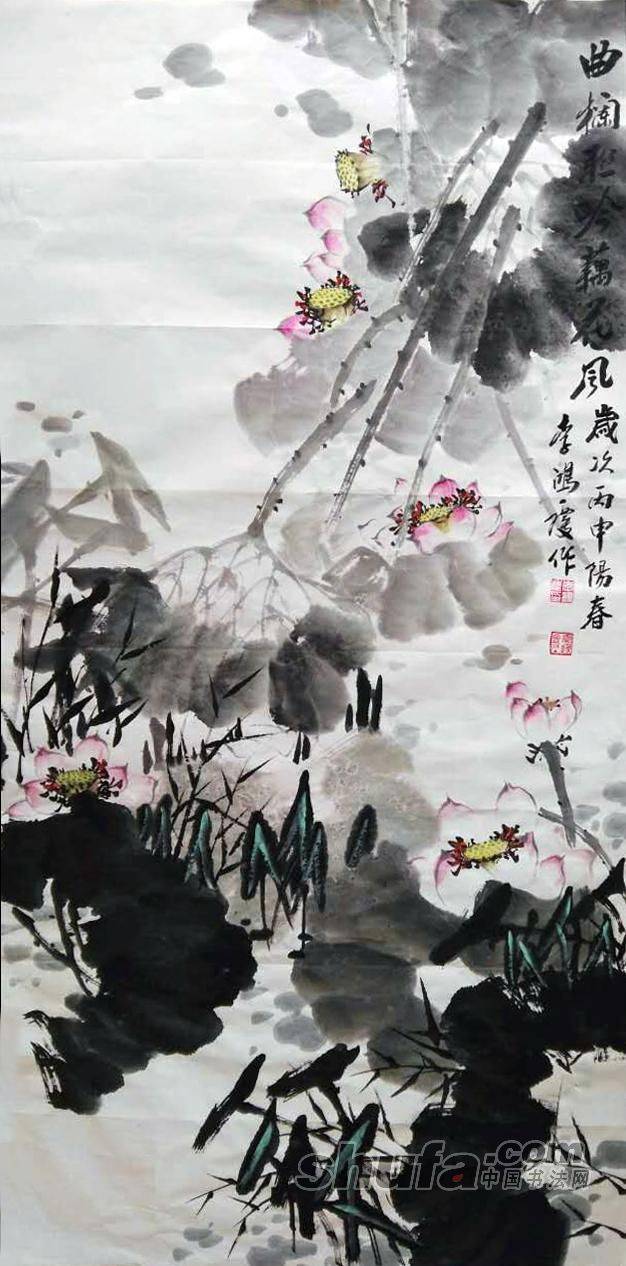 曲栏聊吟藕花风岁次丙申陽春
李鴻 作
shufa.com
中国书法网